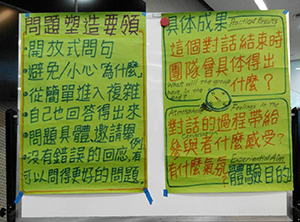 問題塑造要領
•開放式問句
•避免/小心"為什麼"
•從簡單進入複雜
•自己也回答得出來
•問題具體,邀請舉例
•沒有錯誤的回應,有
可以問得更好的問題
具體成果
這個對話結束時
團隊會具體得出
什麼?
對話的過程帶給
參與者什麼感受?
有什麼氣氛?
Experiential Aim
體驗目的